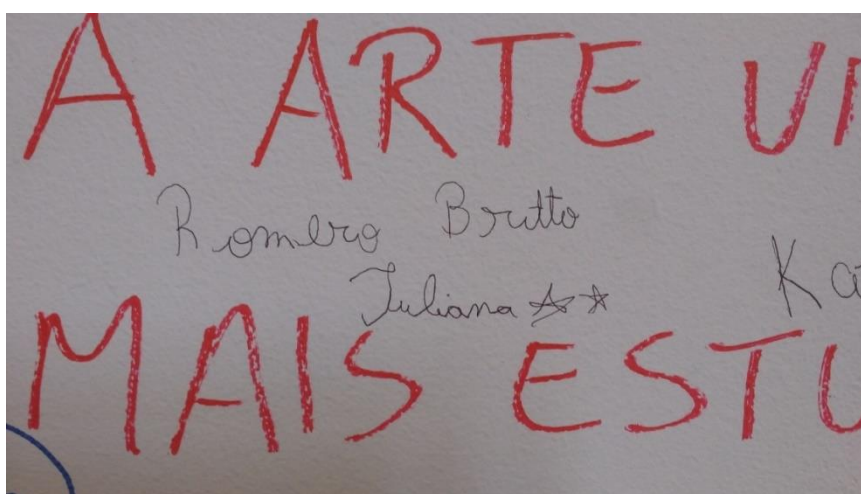 A ARTE
Romero Britto
Juliana
MAIS